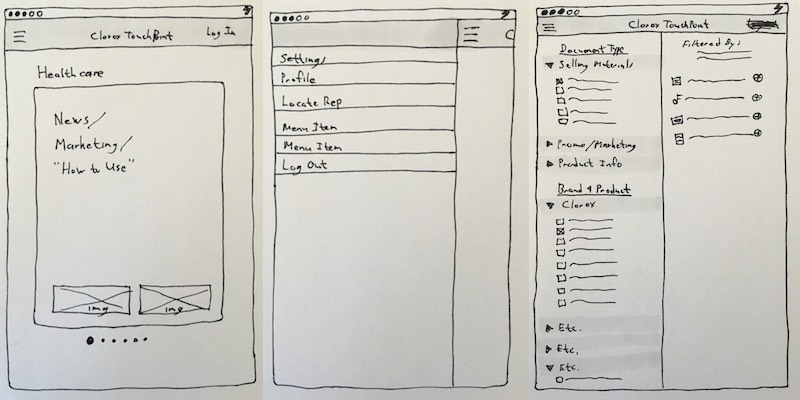 Clorox TouchPoint
Log In
Healthcare
News/
Marketing/
"How to Use"
img
img
Settings
Profile
Locate Rep
Menu Item
Menu Item
Log Out
C
Clorox TouchPoint
Document Type
Selling Materials
Promo/Marketing
Product Info
Brand & Product
Clorox
Etc.
Etc.
Etc.
Filtered By: